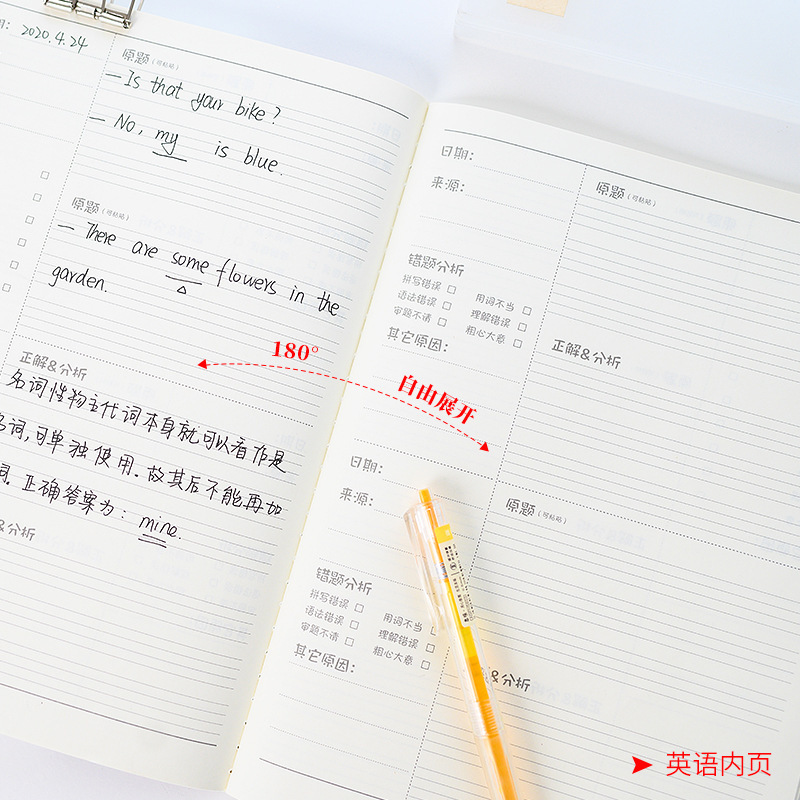 2020.4.24
原题(可粘贴)
—Is that your bike?
—No, my is blue.
原题(可粘贴)
—There are some flowers in the
garden.
正解&分析
名词性物主代词本身就可以看作是
名词,可单独使用.故其后不能再加
词. 正确答案为: mine.
&分析
日期:
来源:
错题分析
拼写错误 用词不当
语法错误 理解错误
审题不清 粗心大意
其它原因:
原题(可粘贴)
正解&分析
180°
自由展开
日期:
来源:
错题分析
拼写错误 用词不当
语法错误 理解错误
审题不清 粗心大意
其它原因:
原题(可粘贴)
&分析
英语内页